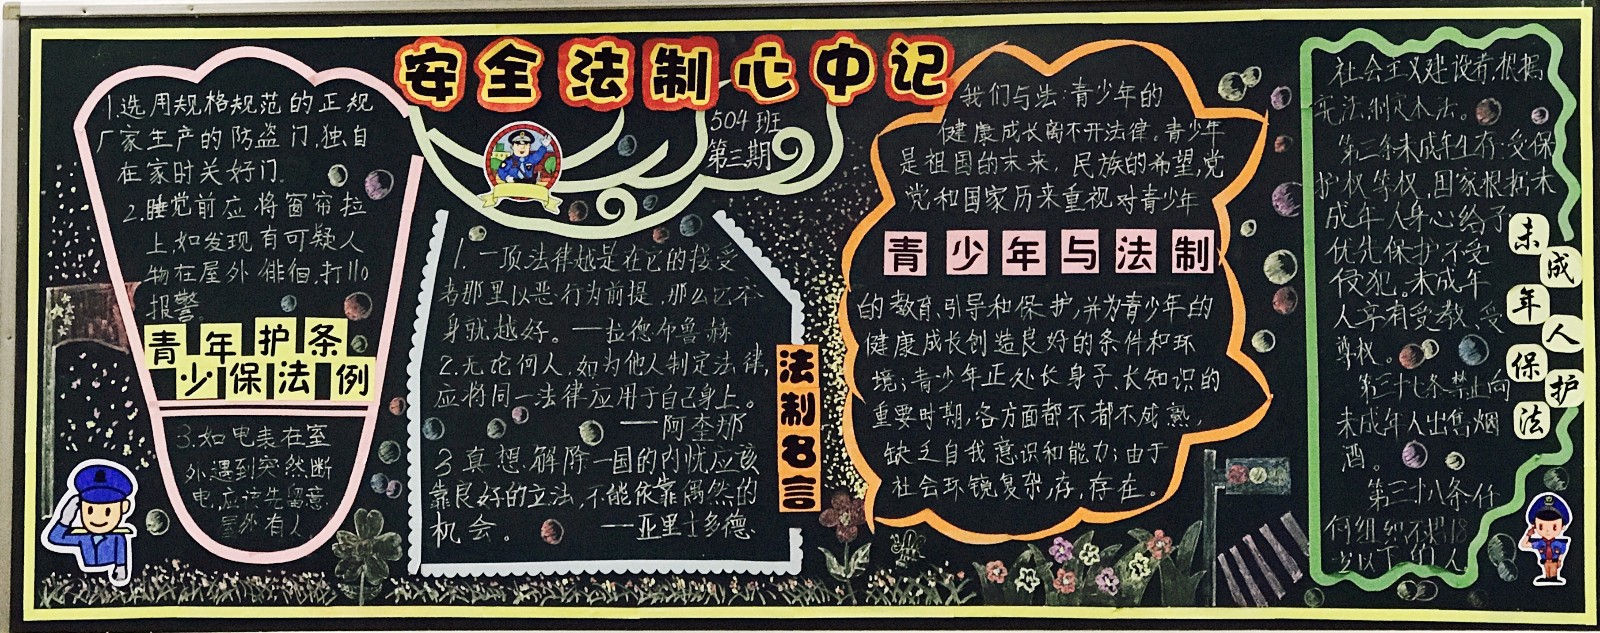 安全法制心中记
504班
第三期
1.选用规格规范的正规
厂家生产的防盗门,独自
在家时关好门.
2.睡觉前应将窗帘拉
上.如发现有可疑人
物在屋外徘徊.打110
报警.
青年护条
少保法例
3.如电表在室
外遇到突然断
电,应该先留意
屋外有人.
1.一项法律越是在它的接受
者那里以恶行为前提,那么它本
身就越好。—拉德布鲁赫
2.无论何人,如为他人制定法律,
应将同一法律应用于自己身上。
—阿奎那
3.真想解除一国的内忧应该
靠良好的立法,不能依靠偶然的
机会。—亚里士多德.
法制名言
我们与法:青少年的
健康成长离不开法律。青少年
是祖国的未来,民族的希望,党
党和国家历来重视对青少年
青少年与法制
的教育、引导和保护,并为青少年的
健康成长创造良好的条件和环
境;青少年正处长身子、长知识的
重要时期,各方面都不都不成熟,
缺乏自我意识和能力;由于
社会环镜复杂,存,存在。
社会主义建设者,根据
宪法,制定本法。
第三条未成年生存:受保
护权等权,国家根据未
成年人身心给了
优先保护,不受
侵犯。未成年
人享有受教、受
尊权。
第三十七条禁止向
未成年人出售烟
酒。
第三十八条任
何组织不招18
岁以下的人
未成年人保护法